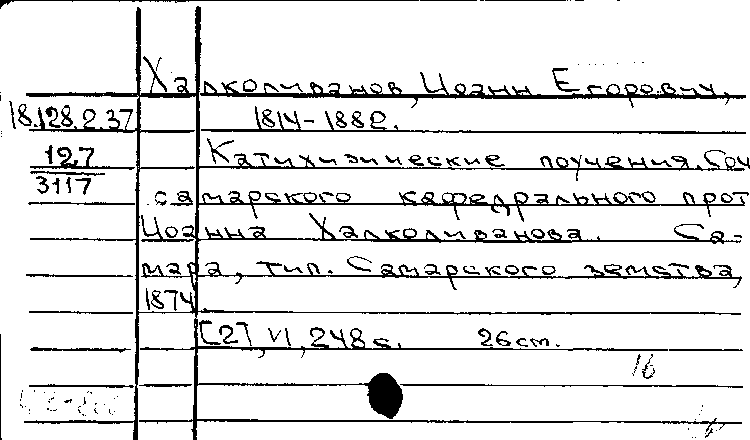 Халколиванов, Иоанн Егорович,
18.128.2.37 1814-1882.
127 Катихизические поучения. Соч
3117 самарского кафедрального прот
Иоанна Халколиванова. Са-
мара, тип. Самарского земства,
1874.
[2], VI, 248 с. 26 см.
16